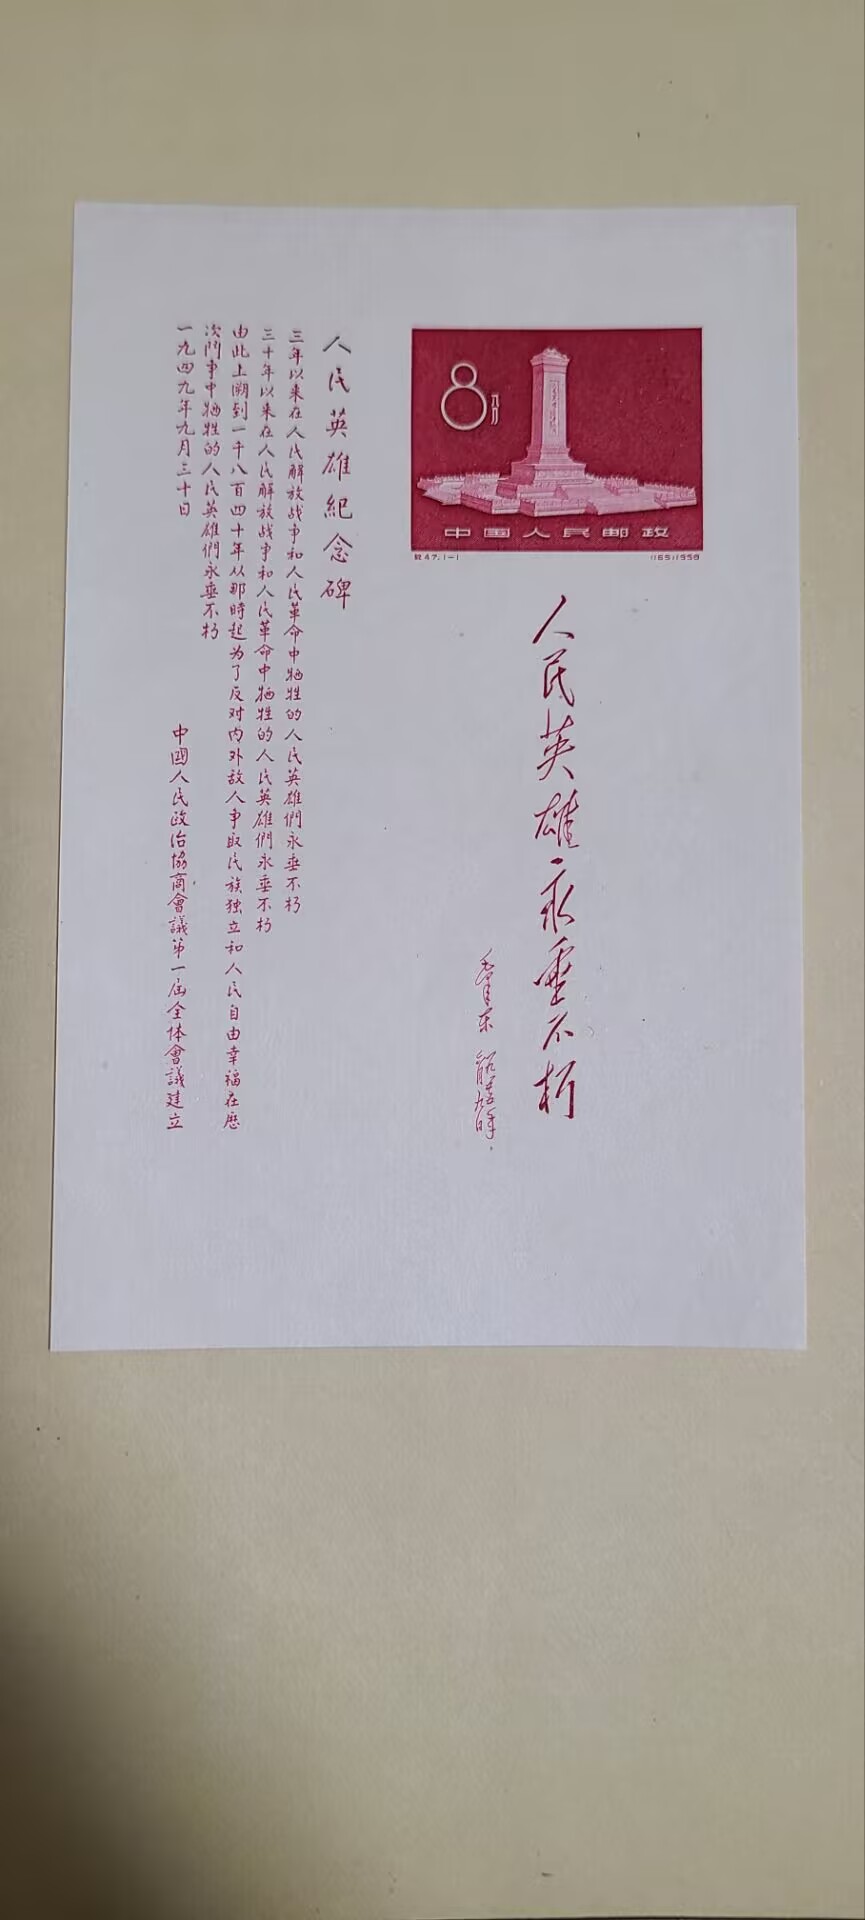 8 八分
中国人民邮政
紀47.(1-1)
(165)1958
人民英雄永垂不朽
人民英雄紀念碑
三年以来在人民解放战争和人民革命中牺牲的人民英雄們永垂不朽
三十年以来在人民解放战争和人民革命中牺牲的人民英雄們永垂不朽
由此上溯到一千八百四十年从那時起为了反对内外敌人争取民族独立和人民自由幸福在歷
次鬥争中牺牲的人民英雄們永垂不朽
一九四九年九月三十日
中國人民政治協商會議第一屆全体會議建立